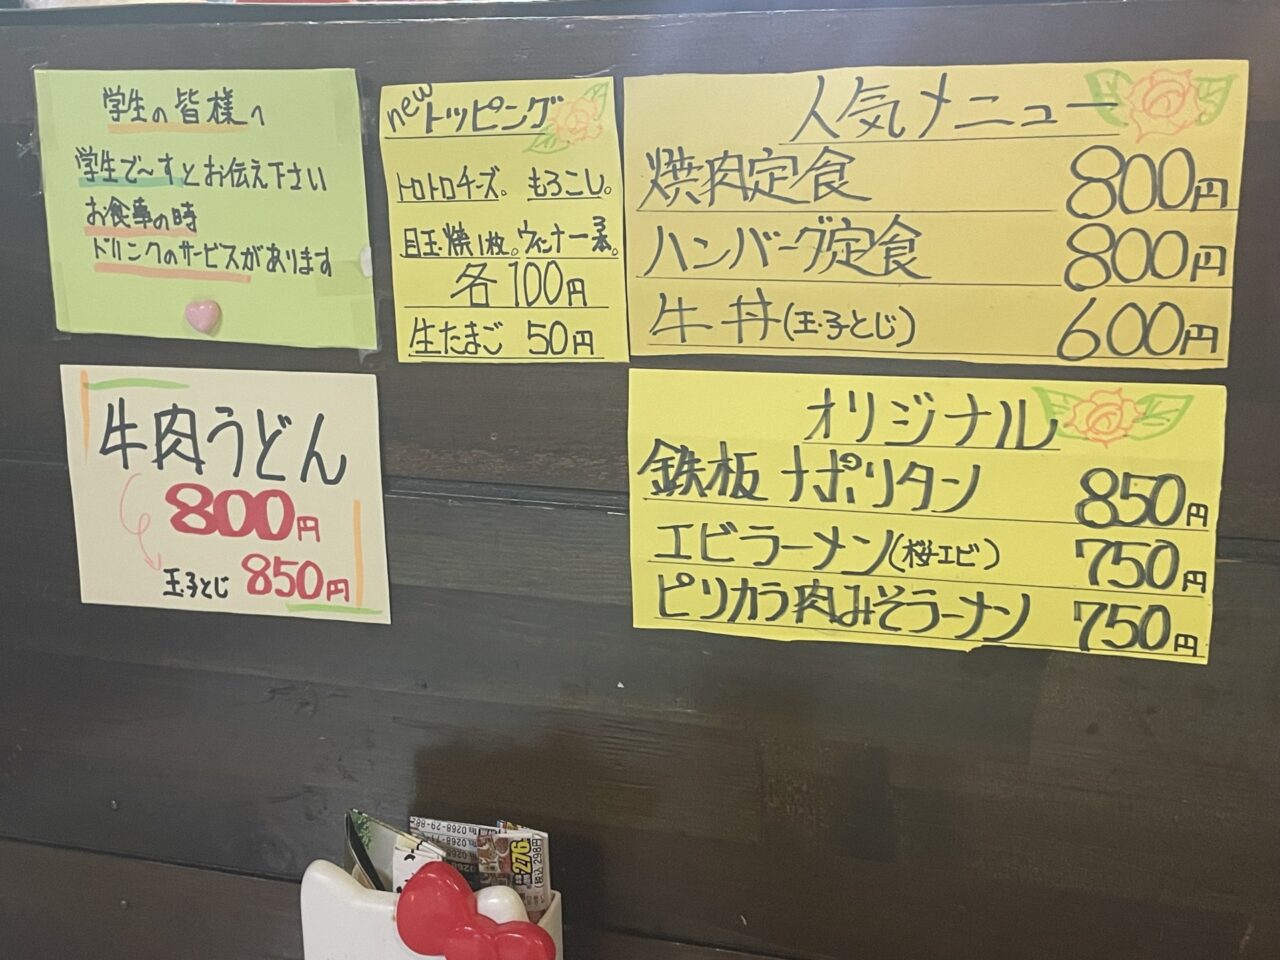 学生の皆様へ
学生で〜すとお伝え下さい
お食事の時
ドリンクのサービスがあります
newトッピング
トロトロチーズ。もろこし。
目玉焼1枚。ウィンナー3本。
各100円
生たまご 50円
人気メニュー
焼肉定食 800円
ハンバーグ定食 800円
牛丼(玉子とじ) 600円
牛肉うどん
800円
玉子とじ 850円
オリジナル
鉄板ナポリタン 850円
エビラーメン(桜エビ) 750円
ピリカラ肉みそラーメン 750円
276
(税込298円)